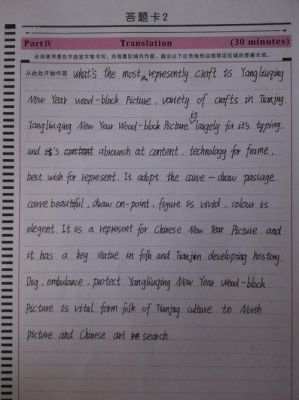 答题卡2
Part IV Translation (30 minutes)
从此处开始作答 what's the most representy craft is Yangliuqing
New Year wood-block Picture, variety of crafts in Tianjng.
Yangliuqing New Year Wood-block Picture is largely for it's typing.
and it's content abrounch at content. technology for frame,
best wish for represent. It adopt the carve-draw passage.
carve beautiful, draw on-point, figure is vivid, colour is
elegent. It is a represent for Chinese New Year Picture. and
it has a key statue in folk and Tianjin developing history.
Dig, embulance, protect Yangliuqing New Year wood-block
picture is vital form folk of Tianjng culture to North
picture and Chinese art search.